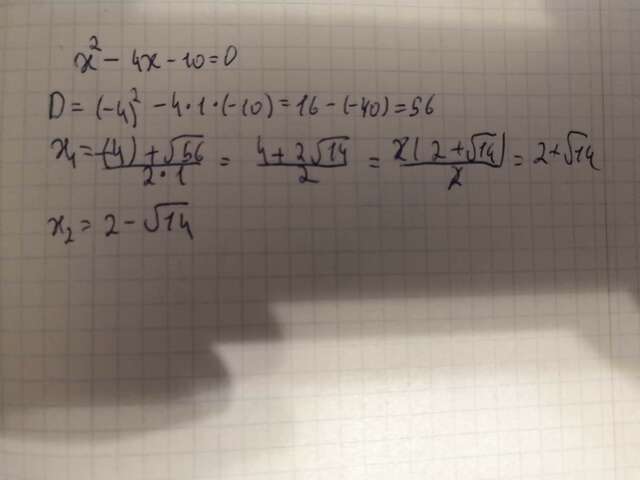 x² - 4x - 10 = 0
D = (-4)² - 4·1·(-10) = 16 - (-40) = 56
x₁ = (-(4) + √56)/(2·1) = (4 + 2√14)/2 = (2(2 + √14))/2 = 2 + √14
x₂ = 2 - √14